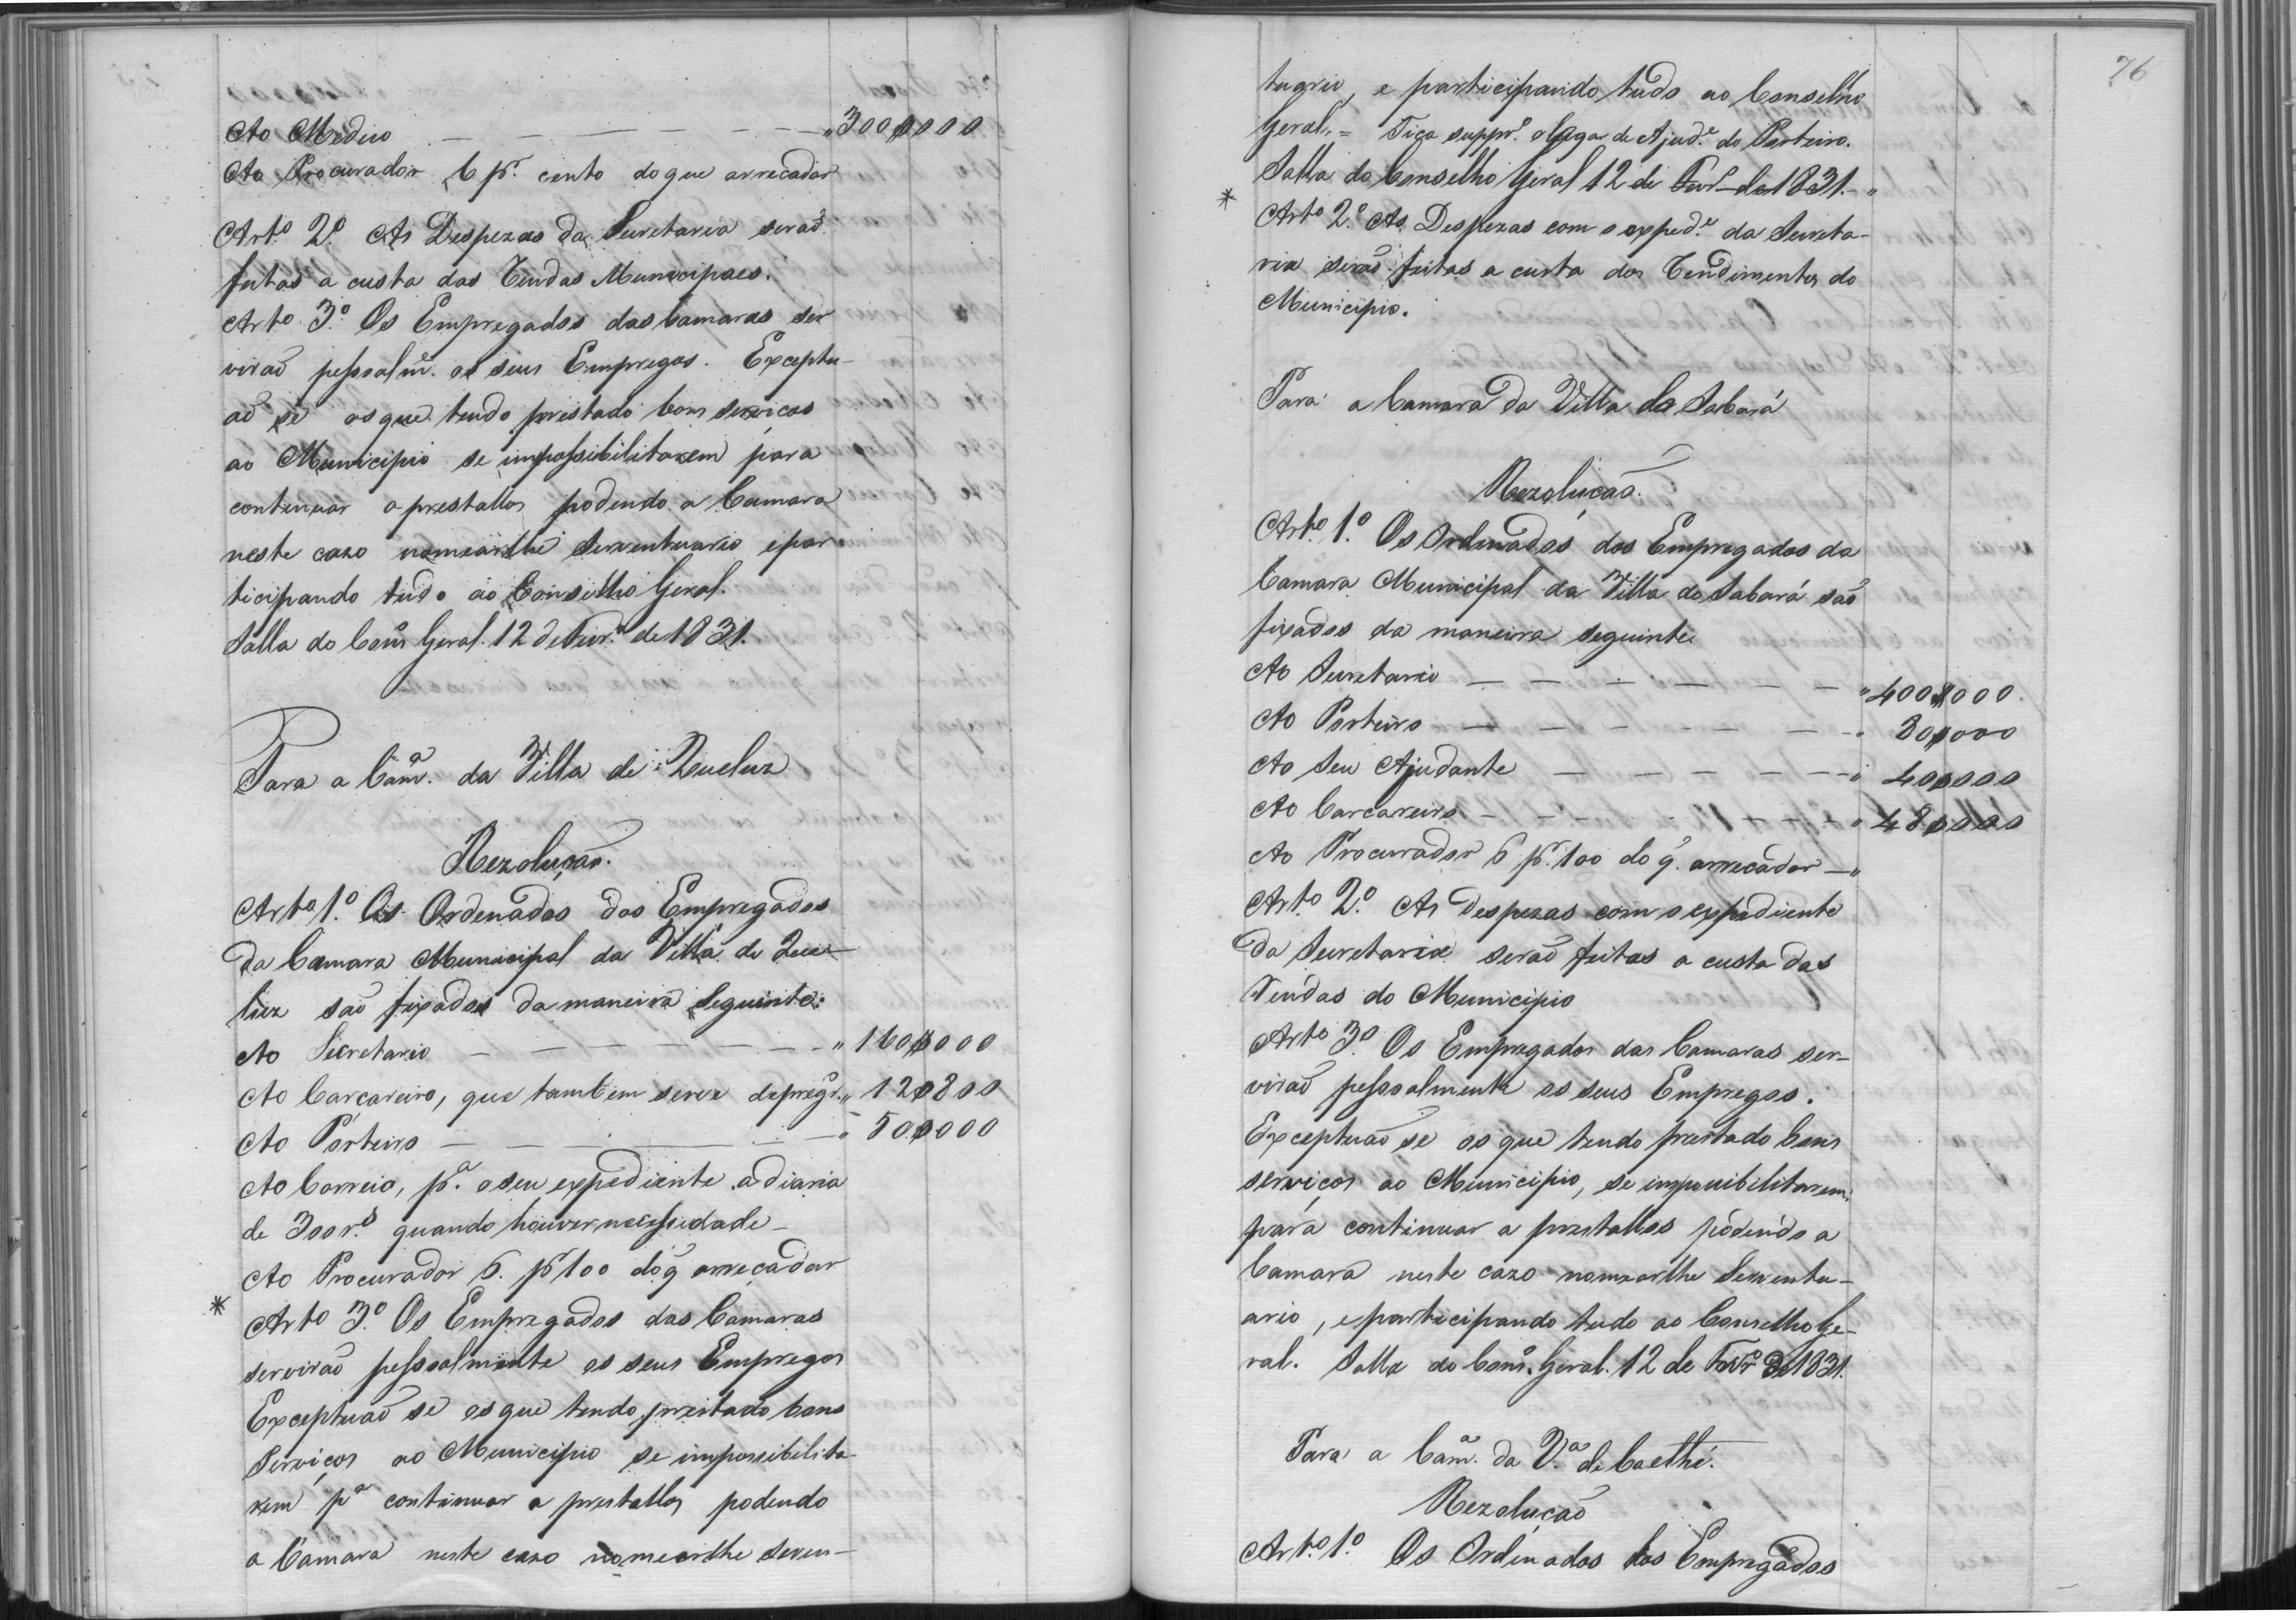 Ao Medico — — — — — — " 300$000
Ao Procurador 6 p.r cento do que arrecadar
Art.o 2.o As Despezas da Secretaria seraõ
feitas a custa das Rendas Municipaes.
Art.o 3.o Os Empregados das Camaras ser
viraõ pessoalm.e os seus Empregos. Exceptu-
aõ se os que tendo prestado bons serviços
ao Municipio se impossibilitarem para
continuar a prestallos podendo a Camara
neste cazo nomearlhe serventuario e par
ticipando tudo ao Conselho Geral.
Salla do Cons. Geral. 12 de Fevr.o de 1831.
Para a Cam.a da Villa de Queluz
Rezoluçaõ.
Art.o 1.o Os Ordenados dos Empregados
da Camara Municipal da Villa de Que-
luz saõ fixados da maneira seguinte:
Ao Secretario — — — — — — " 160$000
Ao Carcareiro, que tambem serve de preg.o " 120$800
Ao Porteiro — — — — " 50$000
Ao Correio, p.a o seu expediente a diaria
de 300 r.s quando houver necessidade —
Ao Procurador 6. p.r 100 do q̃ arrecadar
* Art.o 3.o Os Empregados das Camaras
serviraõ pessoalmente os seus Empregos
Exceptuaõ se os que tendo prestado bons
Serviços ao Municipio se impossibilita-
rem p.a continuar a prestallos podendo
a Camara neste cazo nomearlhe serven-
76
tuario, e participando tudo ao Conselho
Geral. = Fica suppr.o o lugar de Ajud.e do Porteiro.
Salla do Conselho Geral 12 de Fevr.o de 1831. — "
* Art.o 2.o As Despezas com o exped.e da Secreta-
ria seraõ feitas a custa dos Rendimentos do
Municipio.
Para a Camara da Villa do Sabará
Rezoluçaõ.
Art.o 1.o Os Ordenados dos Empregados da
Camara Municipal da Villa do Sabará saõ
fixados da maneira seguinte
Ao Secretario — — — — — — " 400$000
Ao Porteiro — — — — — — " 80$000
Ao Seu Ajudante — — — — — " 40$000
Ao Carcareiro — — — — — — " 48$000
Ao Procurador 6 p.r 100 do q̃ arrecadar — "
Art.o 2.o As Despezas com o expediente
da Secretaria seraõ feitas a custa das
Rendas do Municipio
Art.o 3.o Os Empregados das Camaras ser-
viraõ pessoalmente os seus Empregos.
Exceptuaõ se os que tendo prestado bons
serviços ao Municipio, se impossibilitarem
para continuar a prestallos podendo a
Camara neste cazo nomearlhe Serventu-
ario, e participando tudo ao Conselho Ge-
ral. Salla do Cons.o Geral. 12 de Fevr.o de 1831.
Para a Cam.a da V.a de Caethé.
Rezoluçaõ
Art.o 1.o Os Ordenados dos Empregados